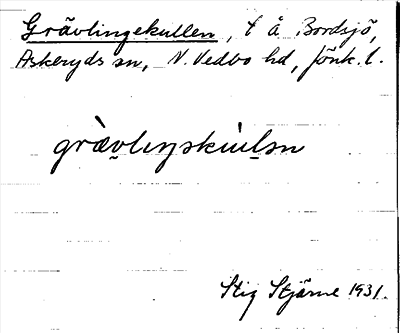 Grävlingekullen, t å Bordsjö,
Askeryds sn, N. Vedbo hd, Jönk. l.
grὲv̬lıŋskulən
Stig Stjärne 1931.